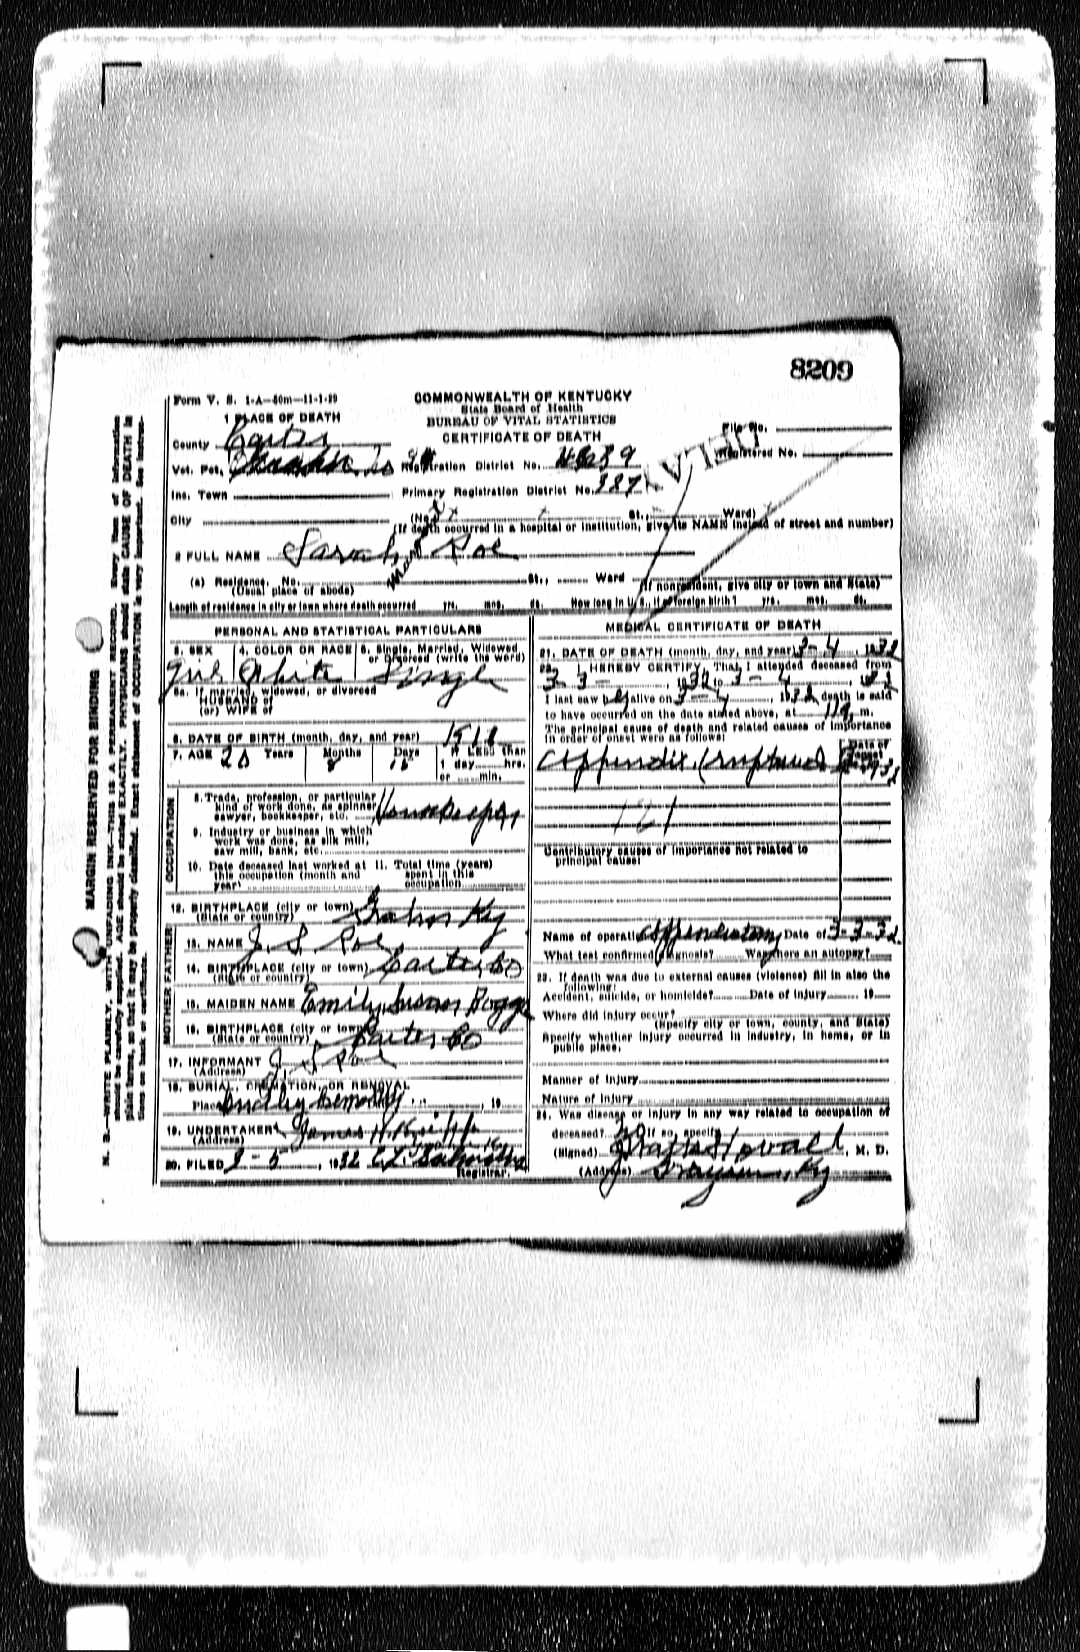 8209
Form V. S. 1-A—50m—11-1-29
COMMONWEALTH OF KENTUCKY
State Board of Health
BUREAU OF VITAL STATISTICS
CERTIFICATE OF DEATH
1 PLACE OF DEATH
County Carter
File No.
Registered No.
DELAYED
Vot. Pct. Registration District No.
Ins. Town Primary Registration District No. 387
City (No. St., Ward)
(If death occurred in a hospital or institution, give its NAME instead of street and number)
2 FULL NAME Sarah Roe
(a) Residence. No. St., Ward
(Usual place of abode) (If nonresident, give city or town and State)
Length of residence in city or town where death occurred yrs. mos. ds. How long in U. S., if of foreign birth? yrs. mos. ds.
PERSONAL AND STATISTICAL PARTICULARS
3. SEX 4. COLOR OR RACE 5. Single, Married, Widowed, or Divorced (write the word)
White Single
5a. If married, widowed, or divorced
HUSBAND of
(or) WIFE of
6. DATE OF BIRTH (month, day, and year)
7. AGE 20 Years Months 8 Days If LESS than
1 day hrs.
or min.
OCCUPATION
8. Trade, profession, or particular
kind of work done, as spinner,
sawyer, bookkeeper, etc. Housekeeper
9. Industry or business in which
work was done, as silk mill,
saw mill, bank, etc.
10. Date deceased last worked at 11. Total time (years)
this occupation (month and spent in this
year) occupation
12. BIRTHPLACE (city or town) Grahn Ky
(State or country)
FATHER
13. NAME J. S. Roe
14. BIRTHPLACE (city or town) Carter Co
(State or country)
MOTHER
15. MAIDEN NAME Emily Susan Boggs
16. BIRTHPLACE (city or town) Carter Co
(State or country)
17. INFORMANT J. S. Roe
(Address)
18. BURIAL, CREMATION, OR REMOVAL
Place , 19
19. UNDERTAKER James H.
(Address)
20. FILED 3-5, 1932
Registrar.
MEDICAL CERTIFICATE OF DEATH
21. DATE OF DEATH (month, day, and year) 3-4 1932
22. I HEREBY CERTIFY, That I attended deceased from
3-3-, 1932 to 3-4, 1932
I last saw h alive on 3-4, 1932 death is said
to have occurred on the date stated above, at m.
The principal cause of death and related causes of importance
in order of onset were as follows:
Date of onset
Appendix (ruptured)
121
Contributory causes of importance not related to
principal cause:
Name of operation Appendectomy Date of 3-3-32.
What test confirmed diagnosis? Was there an autopsy?
23. If death was due to external causes (violence) fill in also the
following:
Accident, suicide, or homicide? Date of injury 19
Where did injury occur?
(Specify city or town, county, and State)
Specify whether injury occurred in industry, in home, or in
public place.
Manner of injury
Nature of injury
24. Was disease or injury in any way related to occupation of
deceased? No If so, specify
(Signed) Stovall, M. D.
(Address) Grayson, Ky
MARGIN RESERVED FOR BINDING
N. B.—WRITE PLAINLY, WITH UNFADING INK—THIS IS A PERMANENT RECORD. Every item of information
should be carefully supplied. AGE should be stated EXACTLY. PHYSICIANS should state CAUSE OF DEATH in
plain terms, so that it may be properly classified. Exact statement of OCCUPATION is very important. See instruc-
tions on back of certificate.